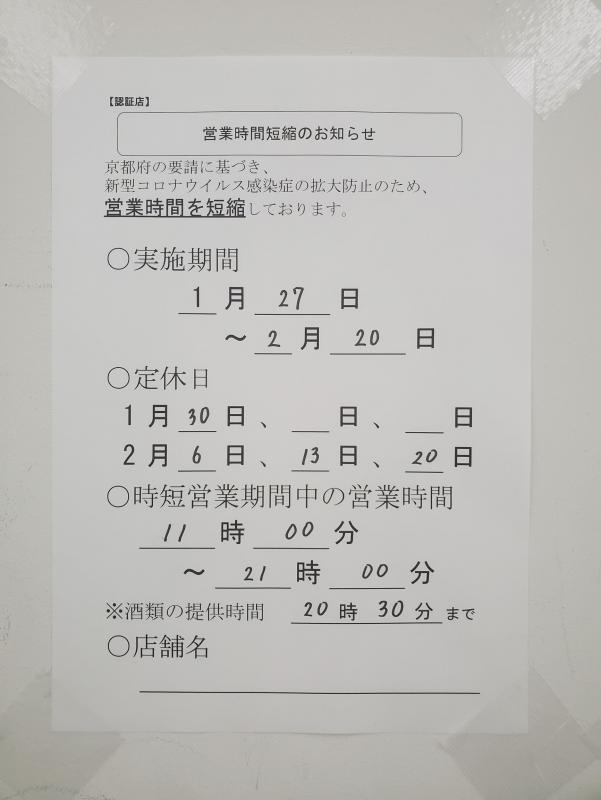 【認証店】
営業時間短縮のお知らせ
京都府の要請に基づき、
新型コロナウイルス感染症の拡大防止のため、
営業時間を短縮しております。
○実施期間
1月27日
～2月20日
○定休日
1月30日、 日、 日
2月6日、13日、20日
○時短営業期間中の営業時間
11時00分
～21時00分
※酒類の提供時間 20時30分まで
○店舗名